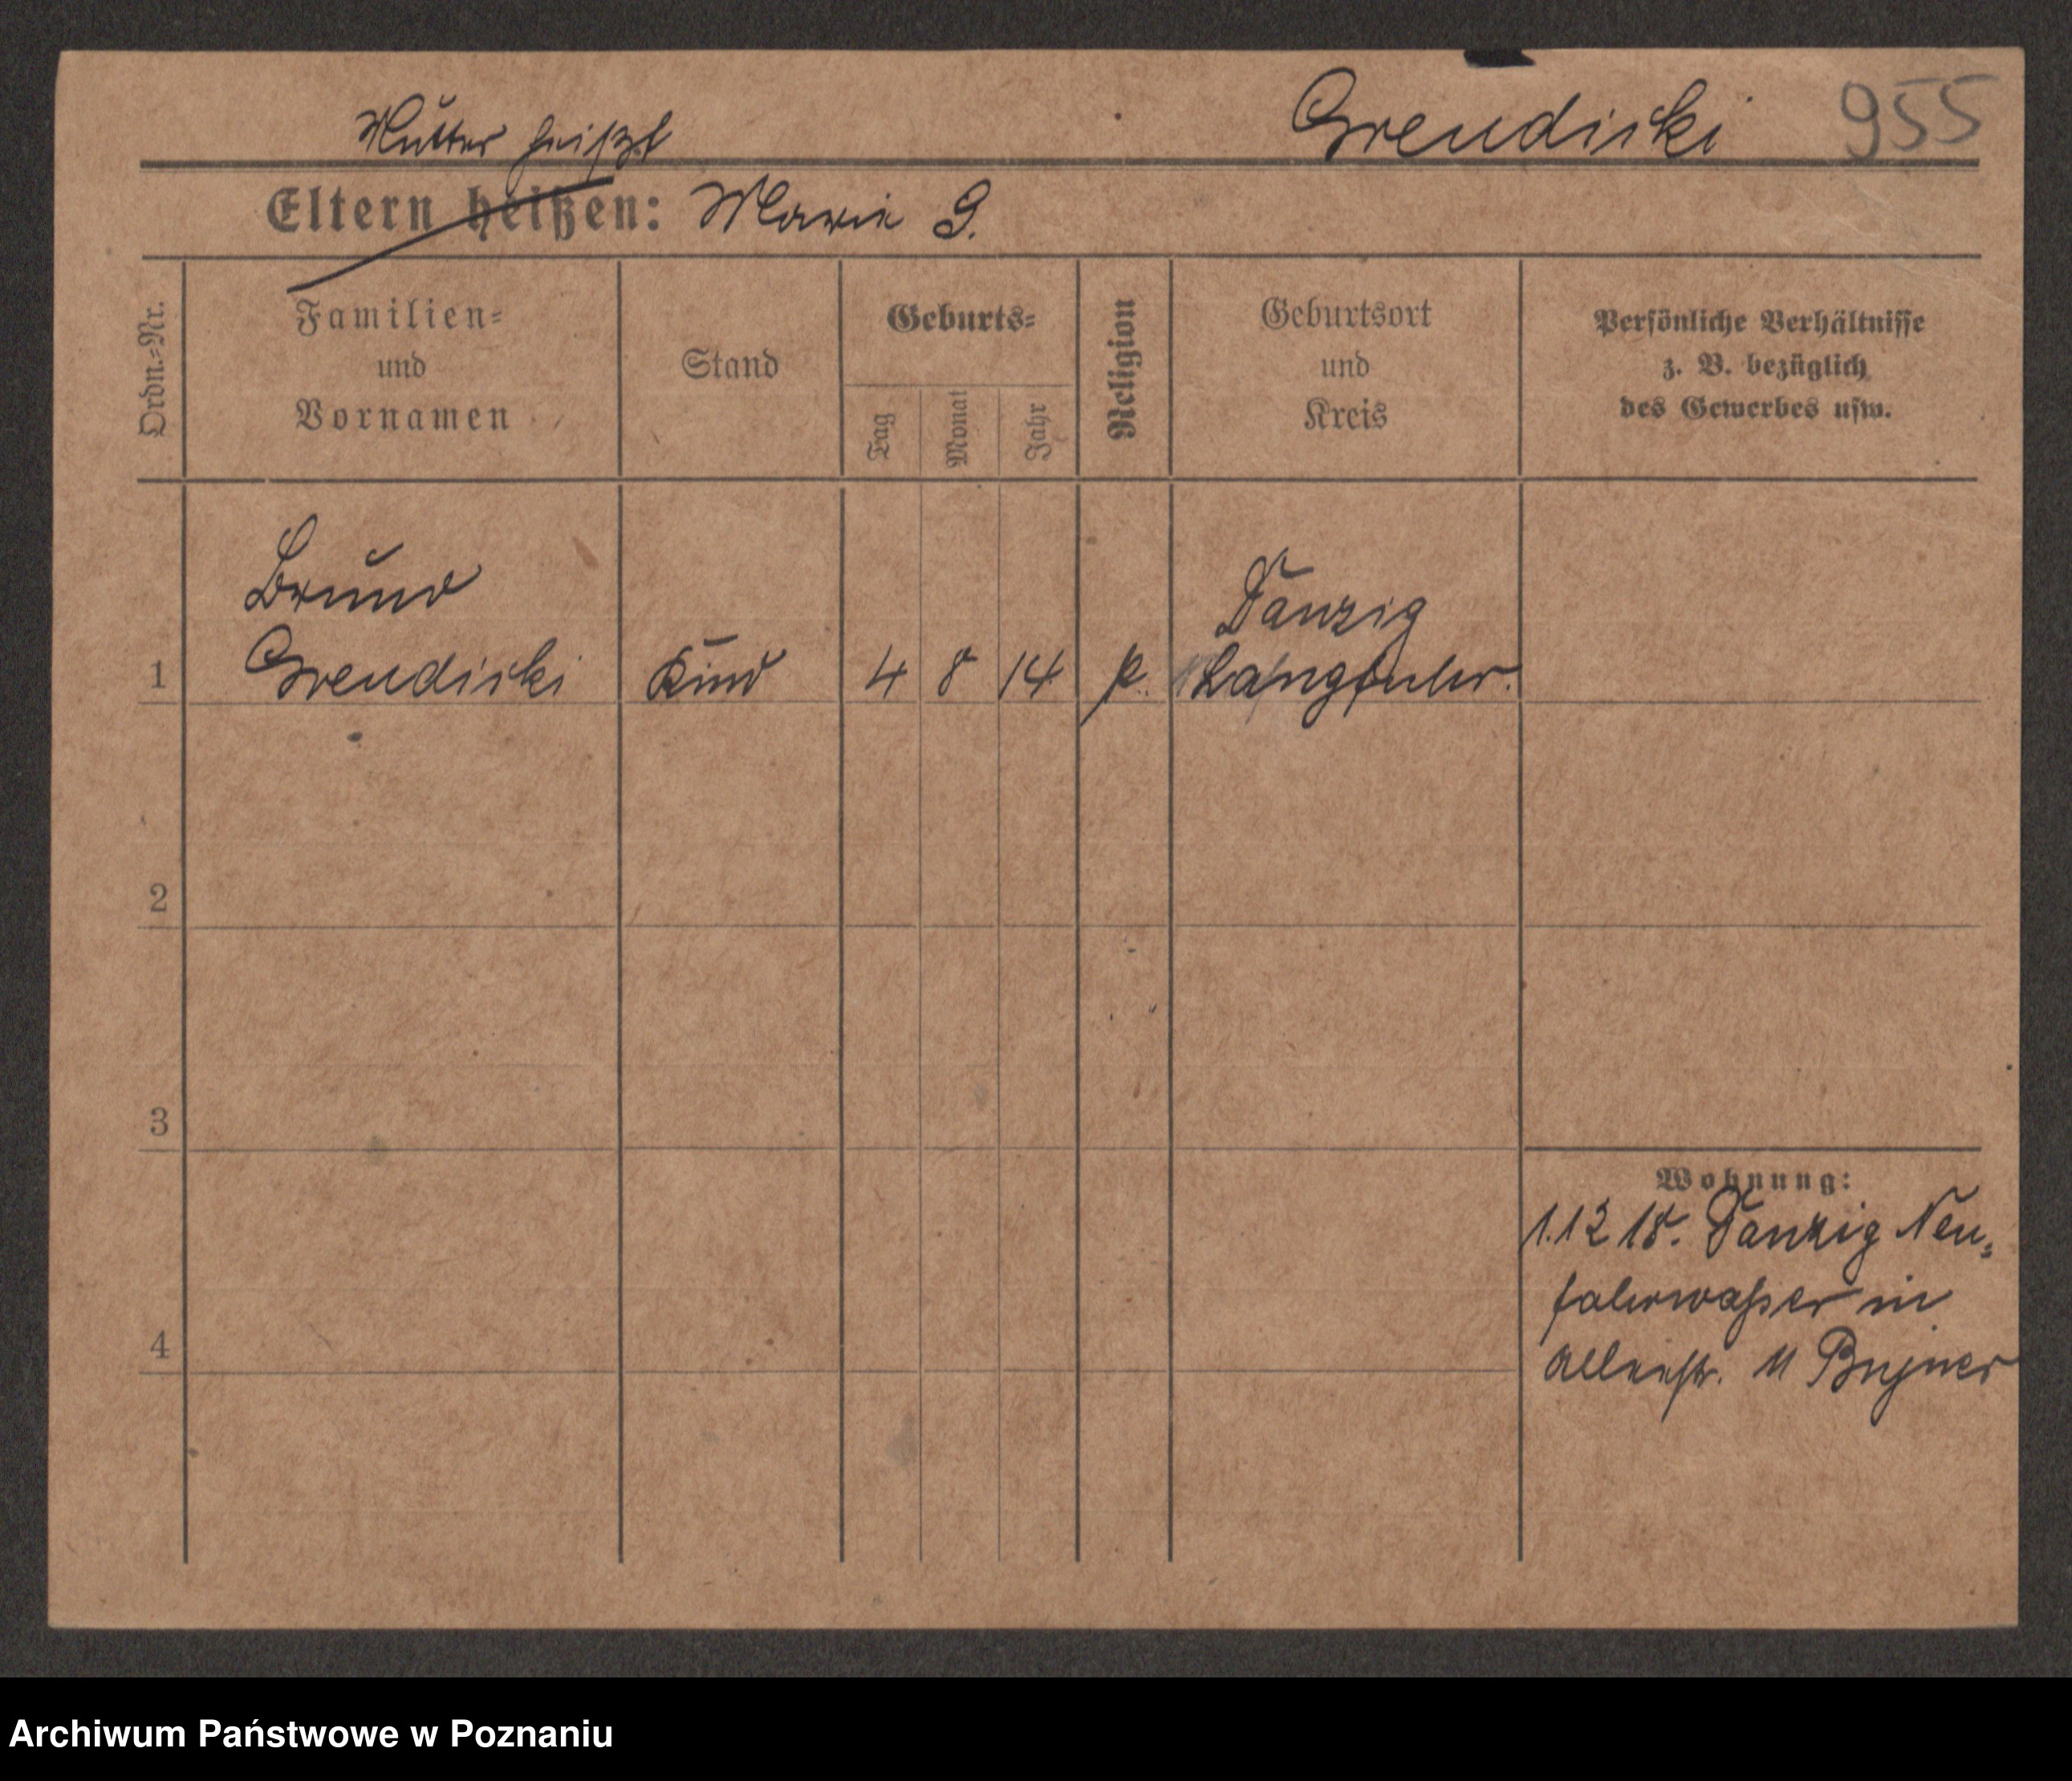 Mutter heißt
Grendiski 955
Eltern heißen: Marie G.
Ordn.=Nr.
Familien=
und
Vornamen
Stand
Geburts=
Tag
Monat
Jahr
Religion
Geburtsort
und
Kreis
Persönliche Verhältnisse
z. B. bezüglich
des Gewerbes usw.
Bruno
Danzig
1 Grendiski Kind 4 8 14 k. Langfuhr.
2
3
Wohnung:
1.12 18. Danzig Neu=
fahrwasser in
4
11
Archiwum Państwowe w Poznaniu